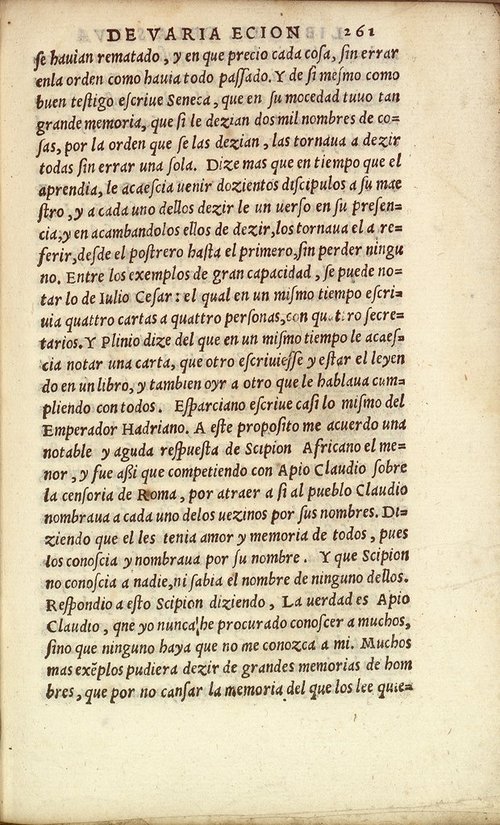 DE VARIA ECION 261
se hauian rematado, y en que precio cada cosa, sin errar
enla orden como hauia todo passado. Y de si mesmo como
buen testigo escriue Seneca, que en su mocedad tuuo tan
grande memoria, que si le dezian dos mil nombres de co=
sas, por la orden que se las dezian, las tornaua a dezir
todas sin errar una sola. Dize mas que en tiempo que el
aprendia, le acaescia uenir dozientos discipulos a su mae
stro, y a cada uno dellos dezir le un uerso en su presen=
cia, y en acambandolos ellos de dezir, los tornaua el a re=
ferir, desde el postrero hasta el primero, sin perder ningu
no. Entre los exemplos de gran capacidad, se puede no=
tar lo de Iulio Cesar: el qual en un mismo tiempo escri=
uia quattro cartas a quattro personas, con quatro secre=
tarios. Y Plinio dize del que en un mismo tiempo le acaes=
cia notar una carta, que otro escriuiesse y estar el leyen
do en un libro, y tambien oyr a otro que le hablaua cum=
pliendo con todos. Esparciano escriue casi lo mismo del
Emperador Hadriano. A este proposito me acuerdo una
notable y aguda respuesta de Scipion Africano el me=
nor, y fue assi que competiendo con Apio Claudio sobre
la censoria de Roma, por atraer a si al pueblo Claudio
nombraua a cada uno delos uezinos por sus nombres. Di=
ziendo que el les tenia amor y memoria de todos, pues
los conoscia y nombraua por su nombre. Y que Scipion
no conoscia a nadie, ni sabia el nombre de ninguno dellos.
Respondio a esto Scipion diziendo, La uerdad es Apio
Claudio, que yo nunca he procurado conoscer a muchos,
sino que ninguno haya que no me conozca a mi. Muchos
mas exẽplos pudiera dezir de grandes memorias de hom
bres, que por no cansar la memoria del que los lee quie=